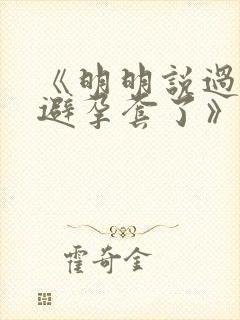 《明明說過
避孕套了》
霍奇金